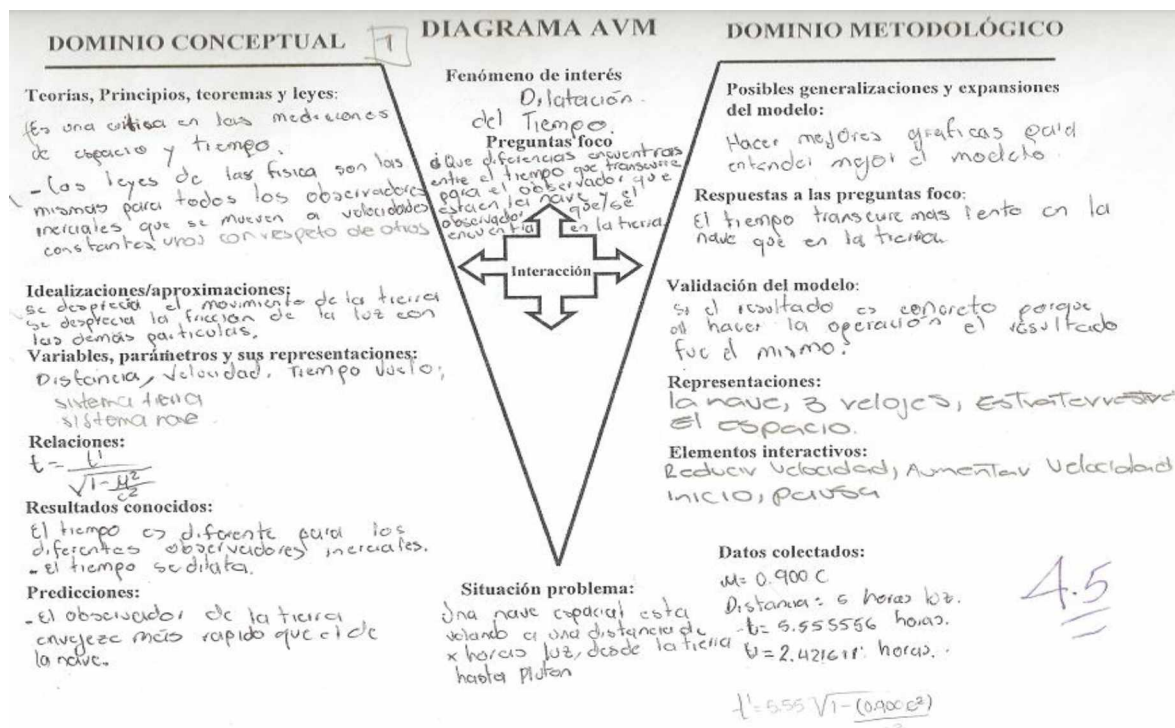 DIAGRAMA AVM
DOMINIO CONCEPTUAL
1
Teorías, Principios, teoremas y leyes:
Es una critica en las mediciones
de espacio y tiempo.
- Las leyes de las fisica son las
mismas para todos los observadores
inerciales que se mueven a velocidades
constantes unos con respeto de otros
Idealizaciones/aproximaciones:
se desprecia el movimiento de la tierra
se desprecia la fricción de la luz con
las demás particulas.
Variables, parámetros y sus representaciones:
Distancia, Velocidad, Tiempo Vuelo,
sistema tierra
sistema nave
Relaciones:
t = t' / √1 - μ²/c²
Resultados conocidos:
El tiempo es diferente para los
diferentes observadores inerciales.
- el tiempo se dilata.
Predicciones:
- El observador de la tierra
envejeze más rapido que el de
la nave.
Fenómeno de interés
Dilatación
del Tiempo.
Preguntas foco
¿Que diferencias encuentras
entre el tiempo que transcurre
para el observador que
esta en la nave y el
observador que se
encuentra en la tierra
Interacción
Situación problema:
Una nave espacial esta
volando a una distancia de
x horas luz, desde la tierra
hasta Pluton
DOMINIO METODOLÓGICO
Posibles generalizaciones y expansiones
del modelo:
Hacer mejores graficas para
entender mejor el modelo.
Respuestas a las preguntas foco:
El tiempo transcure mas lento en la
nave que en la tierra
Validación del modelo:
Si el resultado es concreto porque
al hacer la operación el resultado
fue el mismo.
Representaciones:
la nave, 3 relojes, Extraterrestre
El espacio.
Elementos interactivos:
Reducir Velocidad, Aumentar Velocidad
inicio, pausa
Datos colectados:
μ= 0.900 C
Distancia = 5 horas luz.
t= 5.555556 horas.
= horas.
t'=5.55 √1-(0.900 c²)
4.5